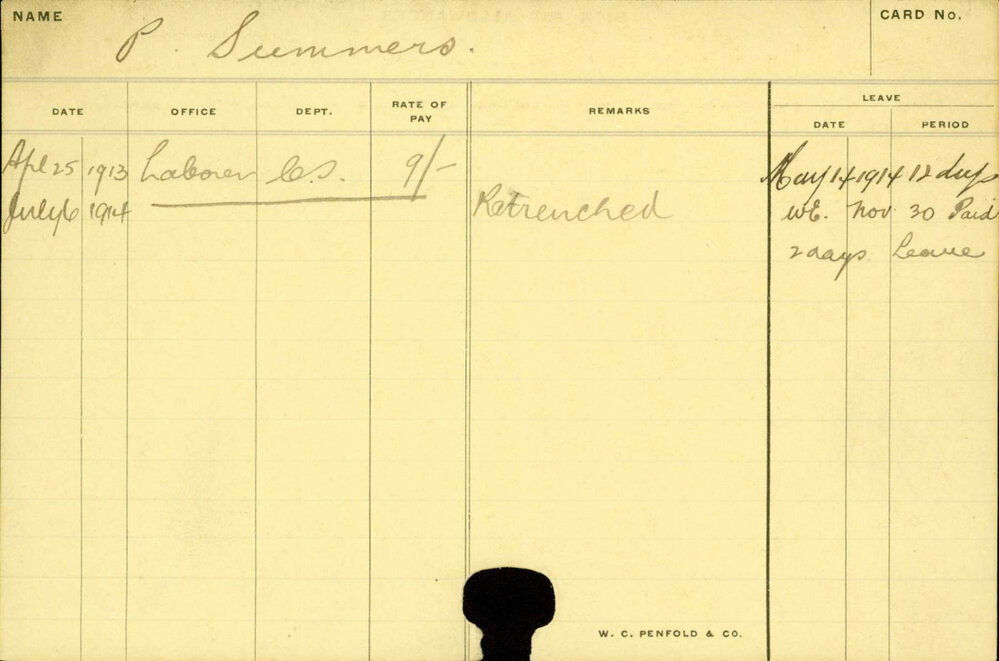 NAME P. Summers. CARD No.
DATE OFFICE DEPT. RATE OF PAY REMARKS LEAVE
DATE PERIOD
Apl 25 1913 Laborer C.S. 9/- May 14 1914 12 days
July 6 1914 Retrenched WE. Nov 30 Paid
2 days Leave
W. C. PENFOLD & CO.